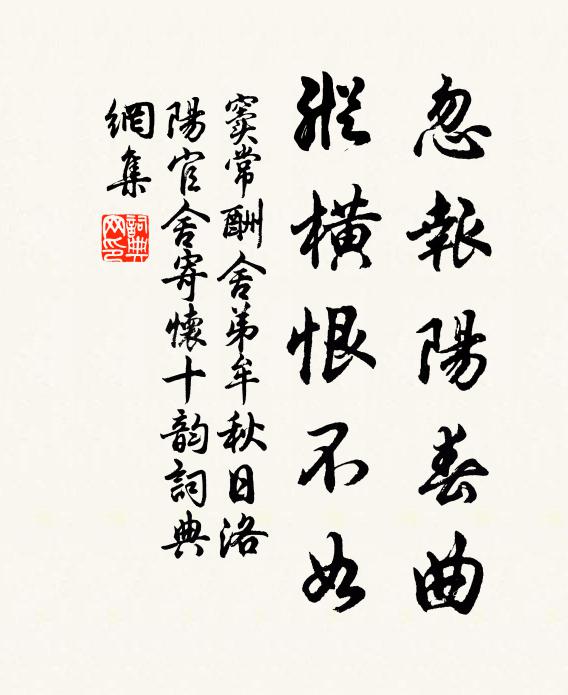 忽報陽春曲
縱橫恨不如
竇常酬舍弟牟秋日洛
陽官舍寄懷十韵詞典
網集
詞典
网印